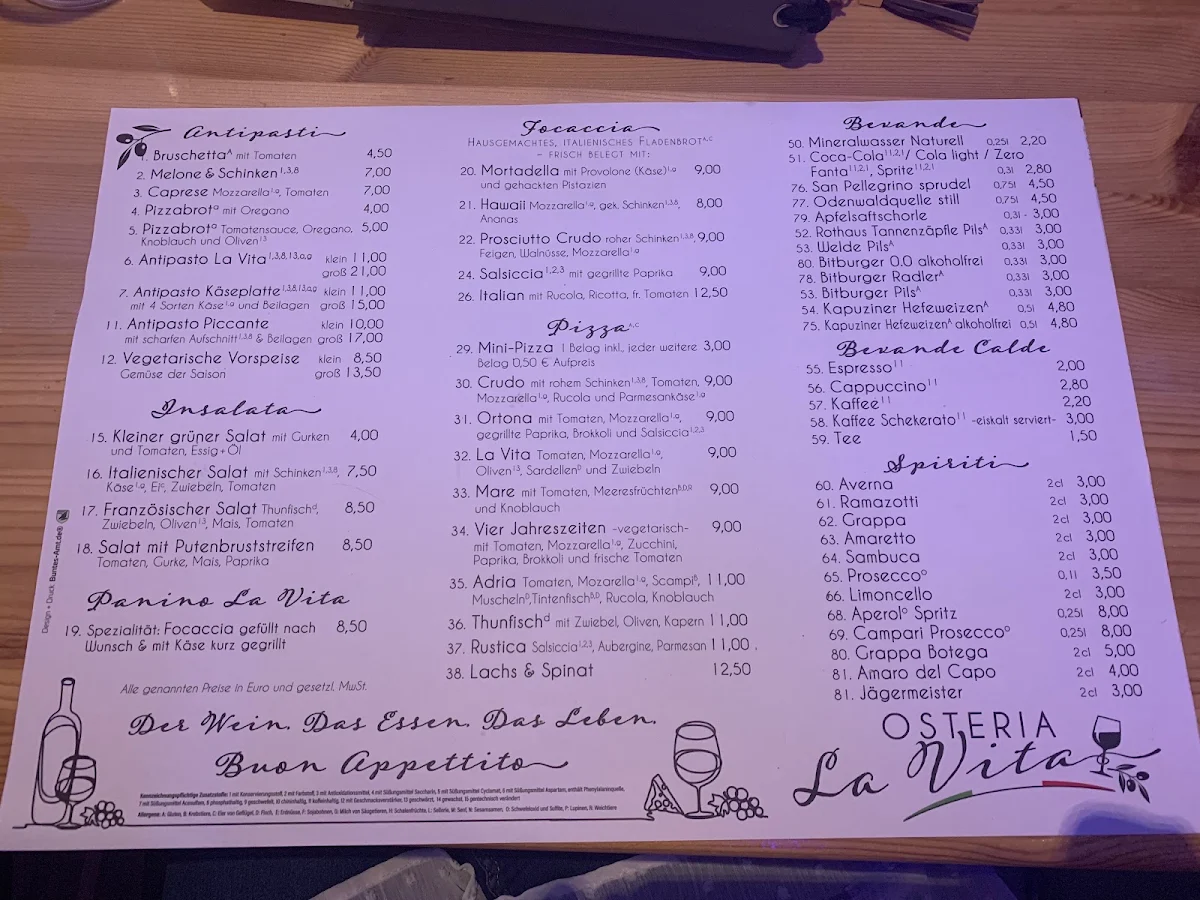 Antipasti
1. Bruschettaᴬ mit Tomaten 4,50
2. Melone & Schinken 1,3,8 7,00
3. Caprese Mozzarella 1,g, Tomaten 7,00
4. Pizzabrotᵃ mit Oregano 4,00
5. Pizzabrotᵃ Tomatensauce, Oregano, 5,00
Knoblauch und Oliven 1,3
6. Antipasto La Vita 1,3,8,13,a,g klein 11,00
groß 21,00
7. Antipasto Käseplatte 1,3,8,13,a,g klein 11,00
mit 4 Sorten Käse 1,g und Beilagen groß 15,00
11. Antipasto Piccante klein 10,00
mit scharfen Aufschnitt 1,3,8 & Beilagen groß 17,00
12. Vegetarische Vorspeise klein 8,50
Gemüse der Saison groß 13,50
Insalata
15. Kleiner grüner Salat mit Gurken 4,00
und Tomaten, Essig+Öl
16. Italienischer Salat mit Schinken 1,3,8, 7,50
Käse 1,g, Eiᶜ, Zwiebeln, Tomaten
17. Französischer Salat Thunfischᵈ, 8,50
Zwiebeln, Oliven 1,3, Mais, Tomaten
18. Salat mit Putenbruststreifen 8,50
Tomaten, Gurke, Mais, Paprika
Panino La Vita
19. Spezialität: Focaccia gefüllt nach 8,50
Wunsch & mit Käse kurz gegrillt
Alle genannten Preise in Euro und gesetzl. MwSt.
Design + Druck: Buntes-Amt.de®
Focaccia
Hausgemachtes, italienisches Fladenbrot A,C
– frisch belegt mit:
20. Mortadella mit Provolone (Käse) 1,g 9,00
und gehackten Pistazien
21. Hawaii Mozzarella 1,g, gek. Schinken 1,3,8, 8,00
Ananas
22. Prosciutto Crudo roher Schinken 1,3,8, 9,00
Feigen, Walnüsse, Mozzarella 1,g
24. Salsiccia 1,2,3 mit gegrillte Paprika 9,00
26. Italian mit Rucola, Ricotta, fr. Tomaten 12,50
Pizza A,C
29. Mini-Pizza 1 Belag inkl., jeder weitere 3,00
Belag 0,50 € Aufpreis
30. Crudo mit rohem Schinken 1,3,8, Tomaten, 9,00
Mozzarella 1,g, Rucola und Parmesankäse 1,g
31. Ortona mit Tomaten, Mozzarella 1,g, 9,00
gegrillte Paprika, Brokkoli und Salsiccia 1,2,3
32. La Vita Tomaten, Mozzarella 1,g, 9,00
Oliven 1,3, Sardellenᴰ und Zwiebeln
33. Mare mit Tomaten, Meeresfrüchten B,D,R 9,00
und Knoblauch
34. Vier Jahreszeiten -vegetarisch- 9,00
mit Tomaten, Mozzarella 1,g, Zucchini,
Paprika, Brokkoli und frische Tomaten
35. Adria Tomaten, Mozarella 1,g, Scampiᴮ, 11,00
Muschelnᴰ,Tintenfisch B,D, Rucola, Knoblauch
36. Thunfischᵈ mit Zwiebel, Oliven, Kapern 11,00
37. Rustica Salsiccia 1,2,3, Aubergine, Parmesan 11,00
38. Lachs & Spinat 12,50
Bevande
50. Mineralwasser Naturell 0,25l 2,20
51. Coca-Cola 11,2,1/ Cola light / Zero
Fanta 11,2,1, Sprite 11,2,1 0,3l 2,80
76. San Pellegrino sprudel 0,75l 4,50
77. Odenwaldquelle still 0,75l 4,50
79. Apfelsaftschorle 0,3l - 3,00
52. Rothaus Tannenzäpfle Pilsᴬ 0,33l 3,00
53. Welde Pilsᴬ 0,33l 3,00
80. Bitburger 0.0 alkoholfrei 0,33l 3,00
78. Bitburger Radlerᴬ 0,33l 3,00
53. Bitburger Pilsᴬ 0,33l 3,00
54. Kapuziner Hefeweizenᴬ 0,5l 4,80
75. Kapuziner Hefeweizenᴬ alkoholfrei 0,5l 4,80
Bevande Calde
55. Espresso 11 2,00
56. Cappuccino 11 2,80
57. Kaffee 11 2,20
58. Kaffee Schekerato 11 -eiskalt serviert- 3,00
59. Tee 1,50
Spiriti
60. Averna 2cl 3,00
61. Ramazotti 2cl 3,00
62. Grappa 2cl 3,00
63. Amaretto 2cl 3,00
64. Sambuca 2cl 3,00
65. Proseccoᴼ 0,1l 3,50
66. Limoncello 2cl 3,00
68. Aperolᴼ Spritz 0,25l 8,00
69. Campari Proseccoᴼ 0,25l 8,00
80. Grappa Botega 2cl 5,00
81. Amaro del Capo 2cl 4,00
81. Jägermeister 2cl 3,00
Der Wein. Das Essen. Das Leben.
Buon Appettito
OSTERIA
La Vita
Kennzeichnungspflichtige Zusatzstoffe: 1 mit Konservierungsstoff, 2 mit Farbstoff, 3 mit Antioxidationsmittel, 4 mit Süßungsmittel Saccharin, 5 mit Süßungsmittel Cyclamat, 6 mit Süßungsmittel Aspartam, enthält Phenylalaninquelle,
7 mit Süßungsmittel Acesulfam, 8 phosphathaltig, 9 geschwefelt, 10 chininhaltig, 11 koffeinhaltig, 12 mit Geschmacksverstärker, 13 geschwärzt, 14 gewachst, 15 gentechnisch verändert